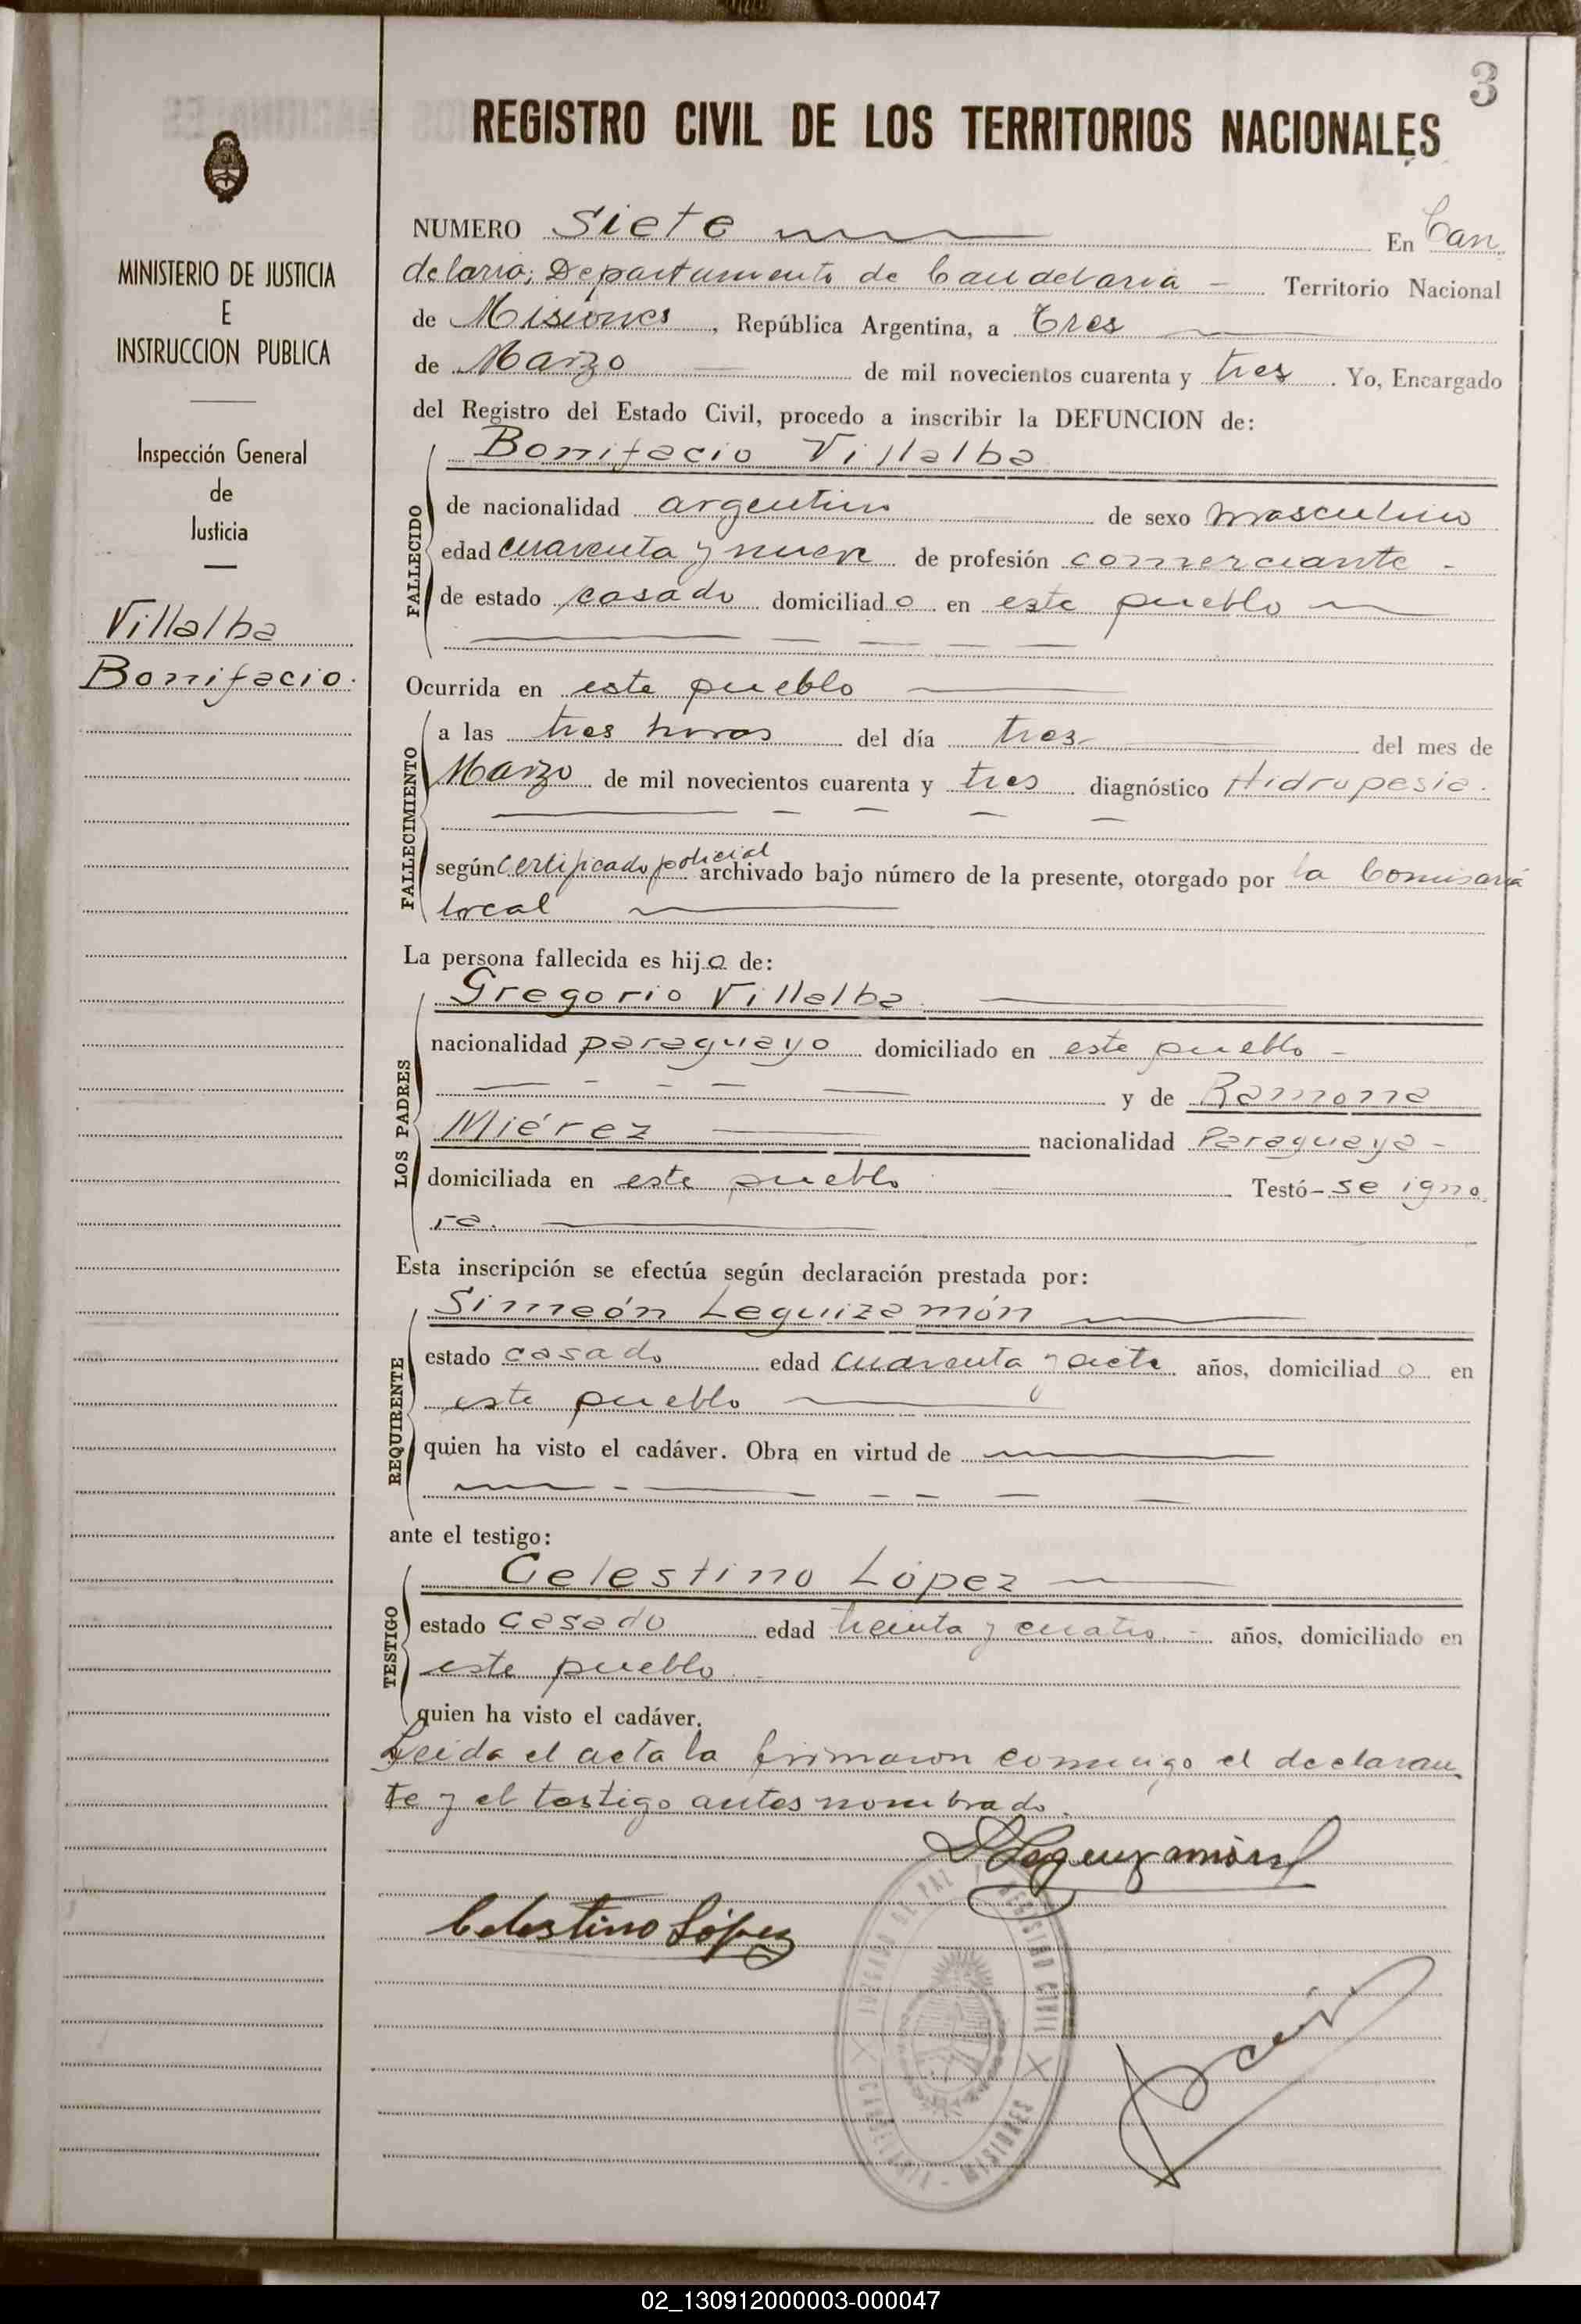 3
REGISTRO CIVIL DE LOS TERRITORIOS NACIONALES
MINISTERIO DE JUSTICIA
E
INSTRUCCION PUBLICA
Inspección General
de
Justicia
Villalba
Bonifacio.
NUMERO Siete En Can
delaria; Departamento de Candelaria - Territorio Nacional
de Misiones, República Argentina, a Tres
de Marzo de mil novecientos cuarenta y tres. Yo, Encargado
del Registro del Estado Civil, procedo a inscribir la DEFUNCION de:
FALLECIDO
Bonifacio Villalba
de nacionalidad argentino de sexo masculino
edad cuarenta y nueve de profesión comerciante -
de estado casado domiciliado en este pueblo
Ocurrida en este pueblo
FALLECIMIENTO
a las tres horas del día tres del mes de
Marzo de mil novecientos cuarenta y tres diagnóstico Hidropesia.
según certificado policial archivado bajo número de la presente, otorgado por la Comisaria
local
La persona fallecida es hijo de:
LOS PADRES
Gregorio Villalba
nacionalidad paraguayo domiciliado en este pueblo -
y de Ramona
Miérez nacionalidad Paraguaya -
domiciliada en este pueblo Testó- se igno
ra.
Esta inscripción se efectúa según declaración prestada por:
REQUIRENTE
Simeón Leguizamón
estado casado edad cuarenta y siete años, domiciliado en
este pueblo
quien ha visto el cadáver. Obra en virtud de
ante el testigo:
TESTIGO
Celestino López
estado casado edad treinta y cuatro - años, domiciliado en
este pueblo.
quien ha visto el cadáver.
Leida el acta la firmaron conmigo el declaran
te y el testigo antes nombrado.
S Leguizamón
Celestino López
JUZGADO DE PAZ Y REGISTRO CIVIL
CANDELARIA - MISIONES
02_130912000003-000047